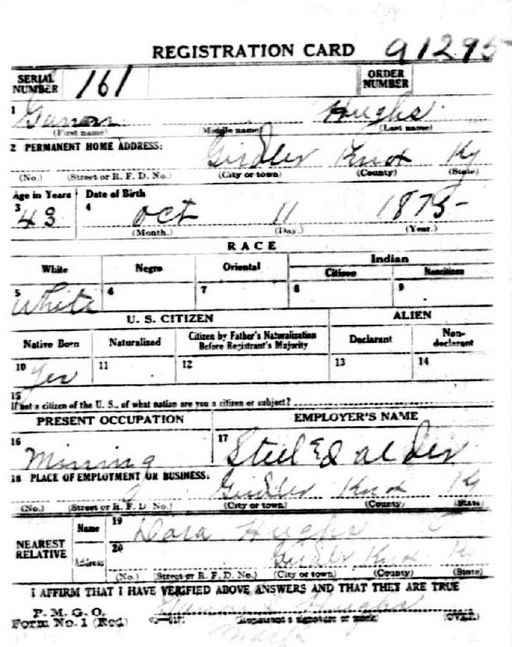 REGISTRATION CARD 91295
SERIAL NUMBER 161 ORDER NUMBER
1 Hughs
(First name) Middle name) (Last name)
2 PERMANENT HOME ADDRESS: Girdler Knox Ky
(No.) (Street or R. F. D. No.) (City or town) (County) (State)
Age in Years Date of Birth
3 43 4 Oct 11 1875
(Month.) (Day.) (Year.)
RACE
White Negro Oriental Indian
Citizen Noncitizen
5 White 6 7 8 9
U. S. CITIZEN ALIEN
Native Born Naturalized Citizen by Father's Naturalization Before Registrant's Majority Declarant Non-declarant
10 Yes 11 12 13 14
15
If not a citizen of the U. S., of what nation are you a citizen or subject?
PRESENT OCCUPATION EMPLOYER'S NAME
16 Mining 17
18 PLACE OF EMPLOYMENT OR BUSINESS: Girdler Knox Ky
(No.) (Street or R. F. D. No.) (City or town) (County) (State)
NEAREST RELATIVE
Name 19 Hughs
Address 20 Girdler Knox Ky
(No.) (Street or R. F. D. No.) (City or town) (County) (State)
I AFFIRM THAT I HAVE VERIFIED ABOVE ANSWERS AND THAT THEY ARE TRUE
P. M. G. O. Hughs
Form No. 1 (Red) (Registrant's signature or mark) (OVER)